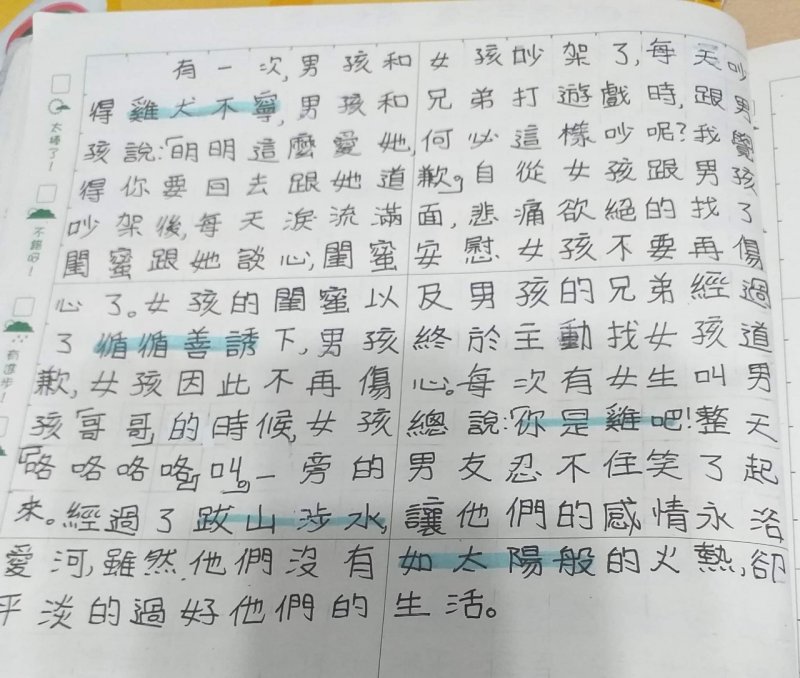 有一次,男孩和女孩吵架了,每天吵
得雞犬不寧,男孩和兄弟打遊戲時,跟男
孩說:「明明這麼愛她,何必這樣吵呢?我覺
得你要回去跟她道歉。」自從女孩跟男孩
吵架後,每天淚流滿面,悲痛欲絕的找了
閨蜜跟她談心,閨蜜安慰女孩不要再傷
心了。女孩的閨蜜以及男孩的兄弟經過
了循循善誘下,男孩終於主動找女孩道
歉,女孩因此不再傷心。每次有女生叫男
孩「哥哥」的時候,女孩總說:「你是雞吧!整天
「咯咯咯咯」叫。」一旁的男友忍不住笑了起
來。經過了跋山涉水,讓他們的感情永浴
愛河,雖然他們沒有如太陽般的火熱,卻
平淡的過好他們的生活。
太棒了!
不錯呀!
有進步!